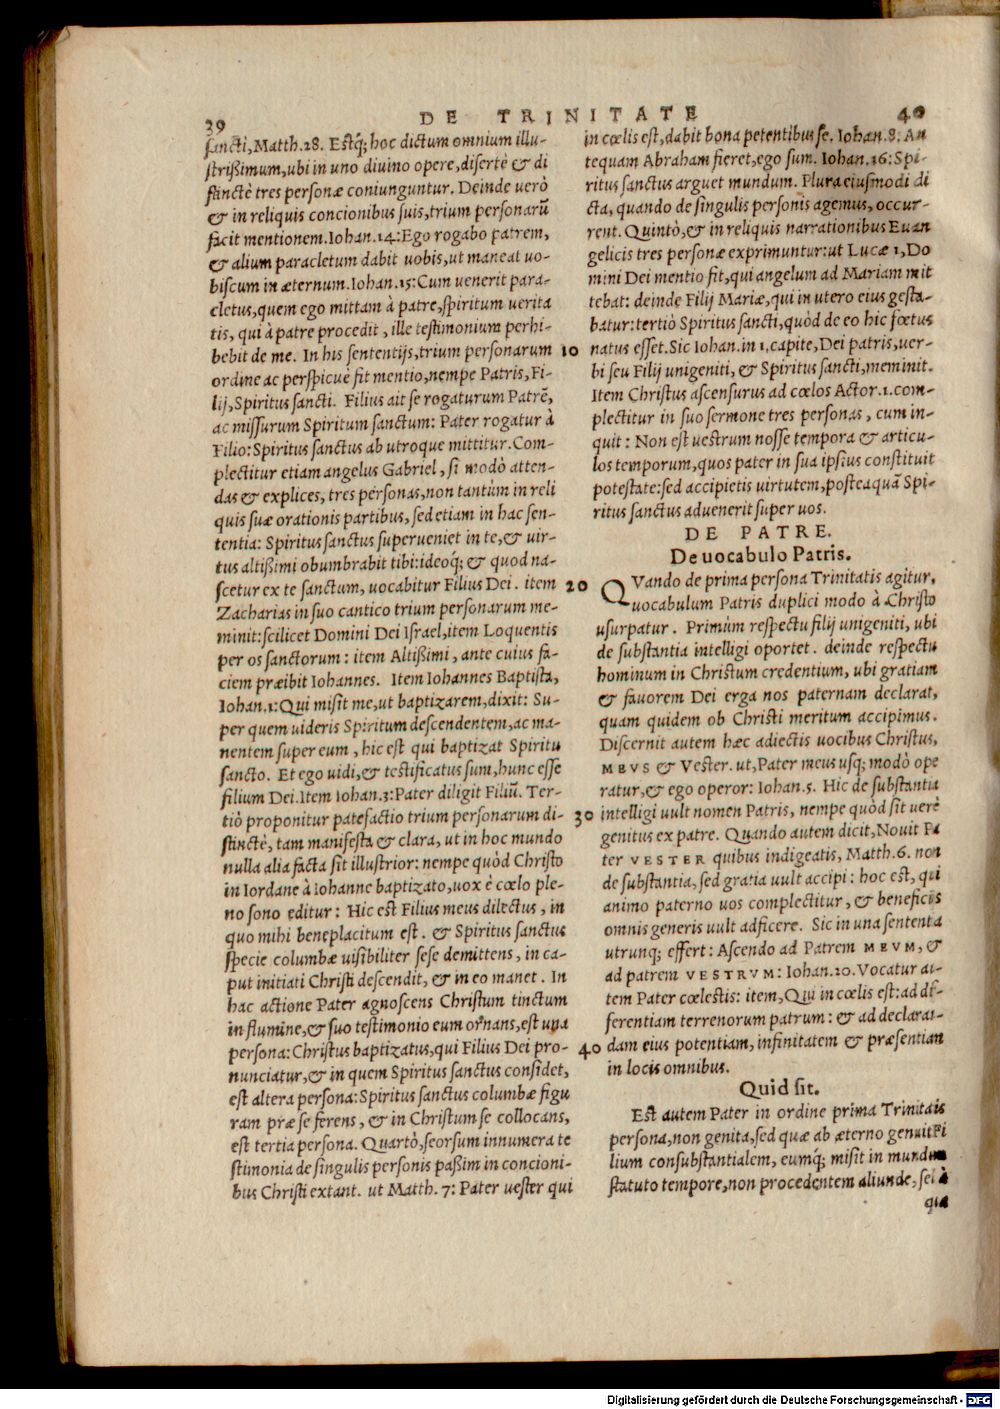 39 DE TRINITATE 40
sancti, Matth. 28. Estq́; hoc dictum omnium illu-
strißimum, ubi in uno diuino opere, disertè & di
stinctè tres personæ coniunguntur. Deinde uerò
& in reliquis concionibus suis, trium personarũ
facit mentionem. Iohan. 14: Ego rogabo patrem,
& alium paracletum dabit uobis, ut maneat uo-
biscum in æternum. Iohan. 15: Cum uenerit para-
cletus, quem ego mittam à patre, spiritum uerita
tis, qui à patre procedit, ille testimonium perhi-
bebit de me. In his sententijs, trium personarum 10
ordine ac perspicuè fit mentio, nempe Patris, Fi-
lij, Spiritus sancti. Filius ait se rogaturum Patrẽ,
ac missurum Spiritum sanctum: Pater rogatur à
Filio: Spiritus sanctus ab utroque mittitur. Com-
plectitur etiam angelus Gabriel, si modò atten-
das & explices, tres personas, non tantùm in reli
quis suæ orationis partibus, sed etiam in hac sen-
tentia: Spiritus sanctus superueniet in te, & uir-
tus altißimi obumbrabit tibi: ideoq́; & quod na-
scetur ex te sanctum, uocabitur Filius Dei. item 20
Zacharias in suo cantico trium personarum me-
minit: scilicet Domini Dei Israel, item Loquentis
per os sanctorum: item Altißimi, ante cuius fa-
ciem præibit Iohannes. Item Iohannes Baptista,
Iohan. 1: Qui misit me, ut baptizarem, dixit: Su-
per quem uideris Spiritum descendentem, ac ma-
nentem super eum, hic est qui baptizat Spiritu
sancto. Et ego uidi, & testificatus sum, hunc esse
filium Dei. Item Iohan. 3: Pater diligit Filiũ. Ter-
tiò proponitur patefactio trium personarum di- 30
stinctè, tam manifesta & clara, ut in hoc mundo
nulla alia facta sit illustrior: nempe quòd Christo
in Iordane à Iohanne baptizato, uox è cœlo ple-
no sono editur: Hic est Filius meus dilectus, in
quo mihi beneplacitum est. & Spiritus sanctus
specie columbæ uisibiliter sese demittens, in ca-
put initiati Christi descendit, & in eo manet. In
hac actione Pater agnoscens Christum tinctum
in flumine, & suo testimonio eum ornans, est una
persona: Christus baptizatus, qui Filius Dei pro- 40
nunciatur, & in quem Spiritus sanctus considet,
est altera persona: Spiritus sanctus columbæ figu
ram præ se ferens, & in Christum se collocans,
est tertia persona. Quartò, seorsum innumera te
stimonia de singulis personis paßim in concioni-
bus Christi extant. ut Matth. 7: Pater uester qui
in cœlis est, dabit bona petentibus se. Iohan. 8: An
tequam Abraham fieret, ego sum. Iohan. 16: Spi-
ritus sanctus arguet mundum. Plura eiusmodi di
cta, quando de singulis personis agemus, occur-
rent. Quintò, & in reliquis narrationibus Euan
gelicis tres personæ exprimuntur: ut Lucæ 1, Do
mini Dei mentio fit, qui angelum ad Mariam mit
tebat: deinde Filij Mariæ, qui in utero eius gesta-
batur: tertiò Spiritus sancti, quòd de eo hic fœtus
natus esset. Sic Iohan. in 1. capite, Dei patris, uer-
bi seu Filij unigeniti, & Spiritus sancti, meminit.
Item Christus ascensurus ad cœlos Actor. 1. com-
plectitur in suo sermone tres personas, cum in-
quit: Non est uestrum nosse tempora & articu-
los temporum, quos pater in sua ipsius constituit
potestate: sed accipietis uirtutem, posteaquã Spi-
ritus sanctus aduenerit super uos.
DE PATRE.
De uocabulo Patris.
QVando de prima persona Trinitatis agitur,
uocabulum Patris duplici modo à Christo
usurpatur. Primùm respectu filij unigeniti, ubi
de substantia intelligi oportet. deinde respectu
hominum in Christum credentium, ubi gratiam
& fauorem Dei erga nos paternam declarat,
quam quidem ob Christi meritum accipimus.
Discernit autem hæc adiectis uocibus Christus,
MEVS & Vester. ut, Pater meus usq; modò ope
ratur, & ego operor: Iohan. 5. Hic de substantia
intelligi uult nomen Patris, nempe quòd sit uerè
genitus ex patre. Quando autem dicit, Nouit Pa
ter VESTER quibus indigeatis, Matth. 6. non
de substantia, sed gratia uult accipi: hoc est, qui
animo paterno uos complectitur, & beneficiis
omnis generis uult adficere. Sic in una sententia
utrunq; effert: Ascendo ad Patrem MEVM, &
ad patrem VESTRVM: Iohan. 20. Vocatur au-
tem Pater cœlestis: item, Qui in cœlis est: ad dif-
ferentiam terrenorum patrum: & ad declaran-
dam eius potentiam, infinitatem & præsentiam
in locis omnibus.
Quid sit.
Est autem Pater in ordine prima Trinitatis
persona, non genita, sed quæ ab æterno genuit Fi
lium consubstantialem, eumq́; misit in mundum
statuto tempore, non procedentem aliunde, sed à
qua
Digitalisierung gefördert durch die Deutsche Forschungsgemeinschaft - DFG